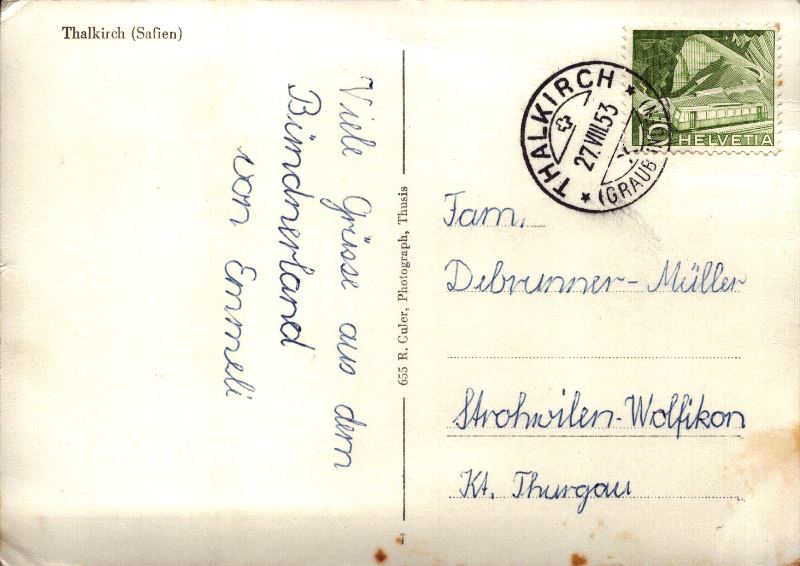 Thalkirch (Safien)
Viele Grüsse aus dem
Bündnerland
von Emmeli
655 R. Culer, Photograph, Thusis
THALKIRCH
27.VIII.53
(GRAUBÜNDEN)
10
HELVETIA
Fam.
Debrunner-Müller
Strohwilen-Wolfikon
Kt. Thurgau